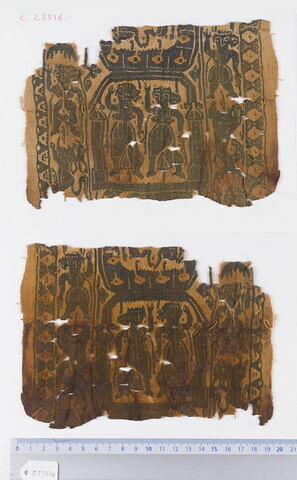 E 23516
0 1 2 3 4 5 6 7 8 9 10 11 12 13 14 15 16 17 18 19 20 21
E 23516